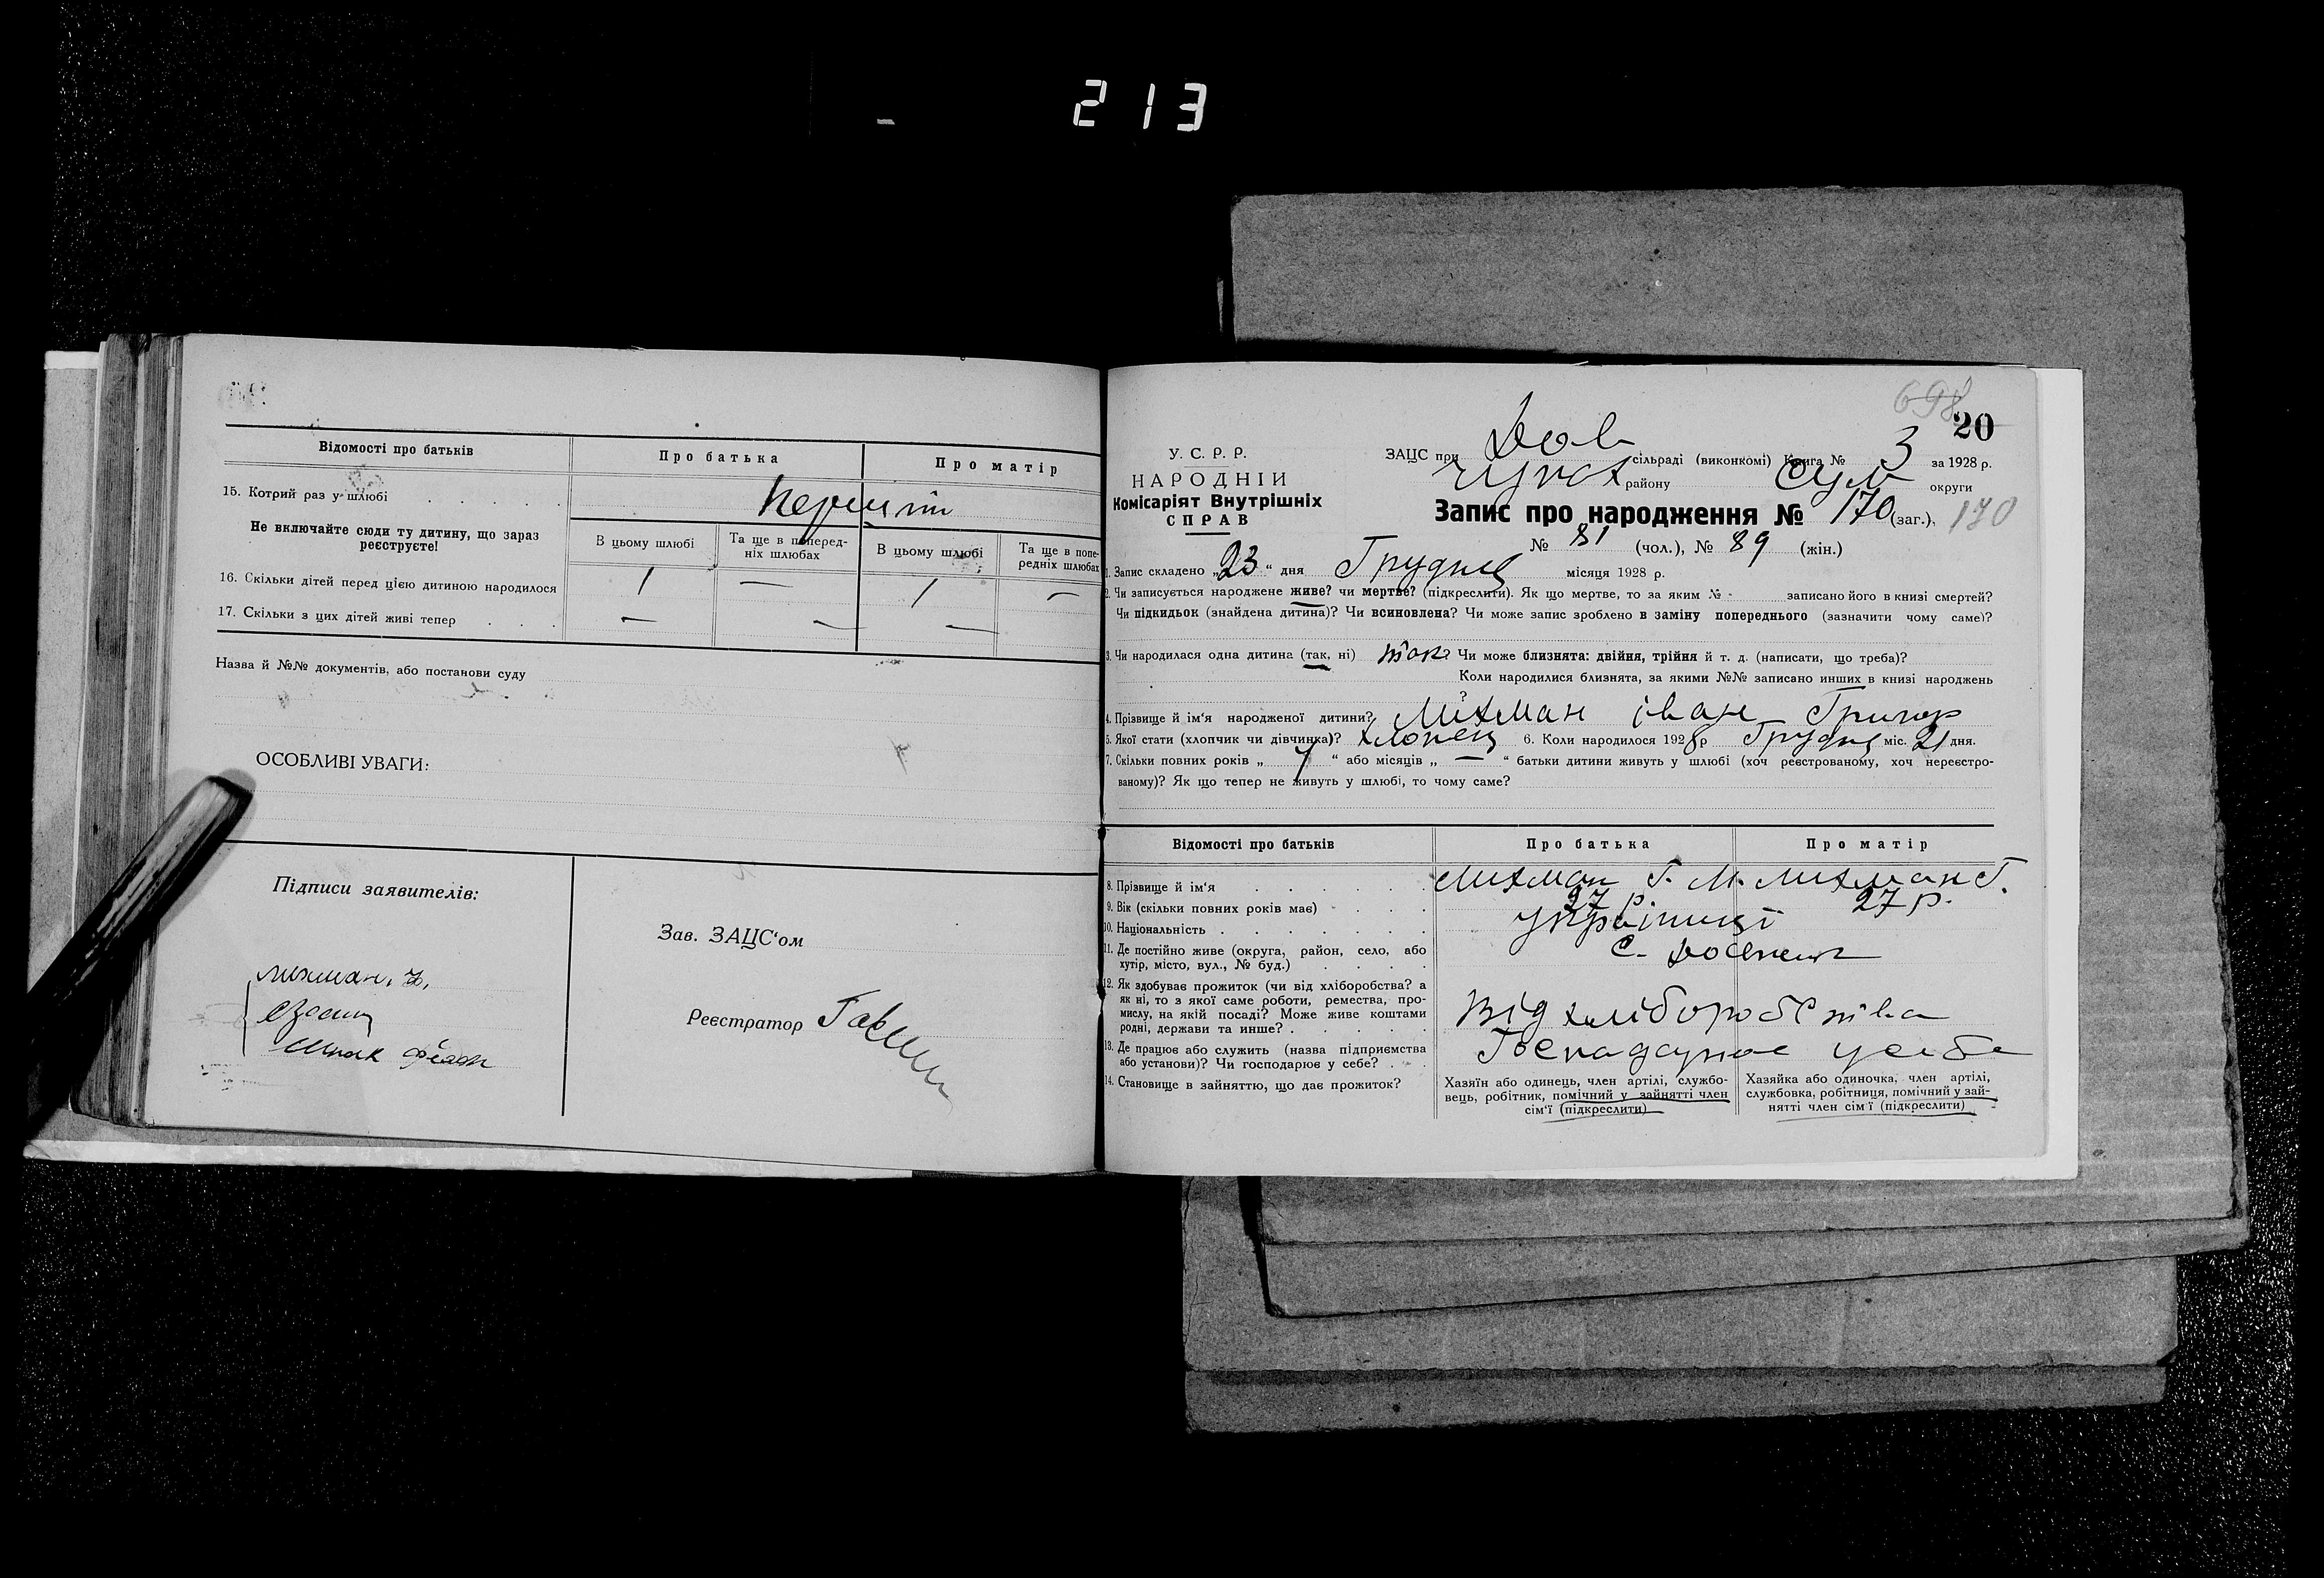 213
Відомості про батьків
Про батька
Про матір
15. Котрий раз у шлюбі
Перший
Не включайте сюди ту дитину, що зараз
реєструєте!
В цьому шлюбі
Та ще в поперед-
ніх шлюбах
В цьому шлюбі
Та ще в попе-
редніх шлюбах
16. Скільки дітей перед цією дитиною народилося
1 — 1 —
17. Скільки з цих дітей живі тепер
— — —
Назва й №№ документів, або постанови суду
ОСОБЛИВІ УВАГИ:
Підписи заявителів:
Зав. ЗАЦС‘ом
Реєстратор
698
20
У. С. Р. Р.
НАРОДНІЙ
Комісаріят Внутрішніх
СПРАВ
ЗАЦС при сільраді (виконкомі) Книга № 3 за 1928 р.
району Сум округи
Запис про народження № 170 (заг.), 170
№ 81 (чол.), № 89 (жін.)
1. Запис складено „23“ дня Грудня місяця 1928 р.
2. Чи записується народжене живе? чи мертве? (підкреслити). Як що мертве, то за яким № - записано його в книзі смертей?
Чи підкидьок (знайдена дитина)? Чи всиновлена? Чи може запис зроблено в заміну попереднього (зазначити чому саме)?
3. Чи народилася одна дитина (так, ні) так Чи може близнята: двійня, трійня й т. д. (написати, що треба)?
Коли народилися близнята, за якими №№ записано инших в книзі народжень
?
4. Прізвище й ім‘я народженої дитини? Михман іван Григор
5. Якої стати (хлопчик чи дівчинка)? хлопець 6. Коли народилося 1928 р Грудня міс. 21 дня.
7. Скільки повних років „ 7 “ або місяців „ — “ батьки дитини живуть у шлюбі (хоч реєстрованому, хоч нереєстро-
ваному)? Як що тепер не живуть у шлюбі, то чому саме?
Відомості про батьків
Про батька
Про матір
8. Прізвище й ім‘я
Михман Г. М. Михман Г.
9. Вік (скільки повних років має)
27 р. 27 р.
10. Національність
українці
11. Де постійно живе (округа, район, село, або
хутір, місто, вул., № буд.)
с.
12. Як здобуває прожиток (чи від хліборобства? а
як ні, то з якої саме роботи, ремества, про-
мислу, на якій посаді? Може живе коштами
родні, держави та инше?
Від хліборобства
13. Де працює або служить (назва підприємства
або установи)? Чи господарює у себе?
у себе
14. Становище в зайняттю, що дає прожиток?
Хазяїн або одинець, член артілі, службо-
вець, робітник, помічний у зайнятті член
сім‘ї (підкреслити)
Хазяйка або одиночка, член артілі,
службовка, робітниця, помічний у зай-
нятті член сім‘ї (підкреслити)